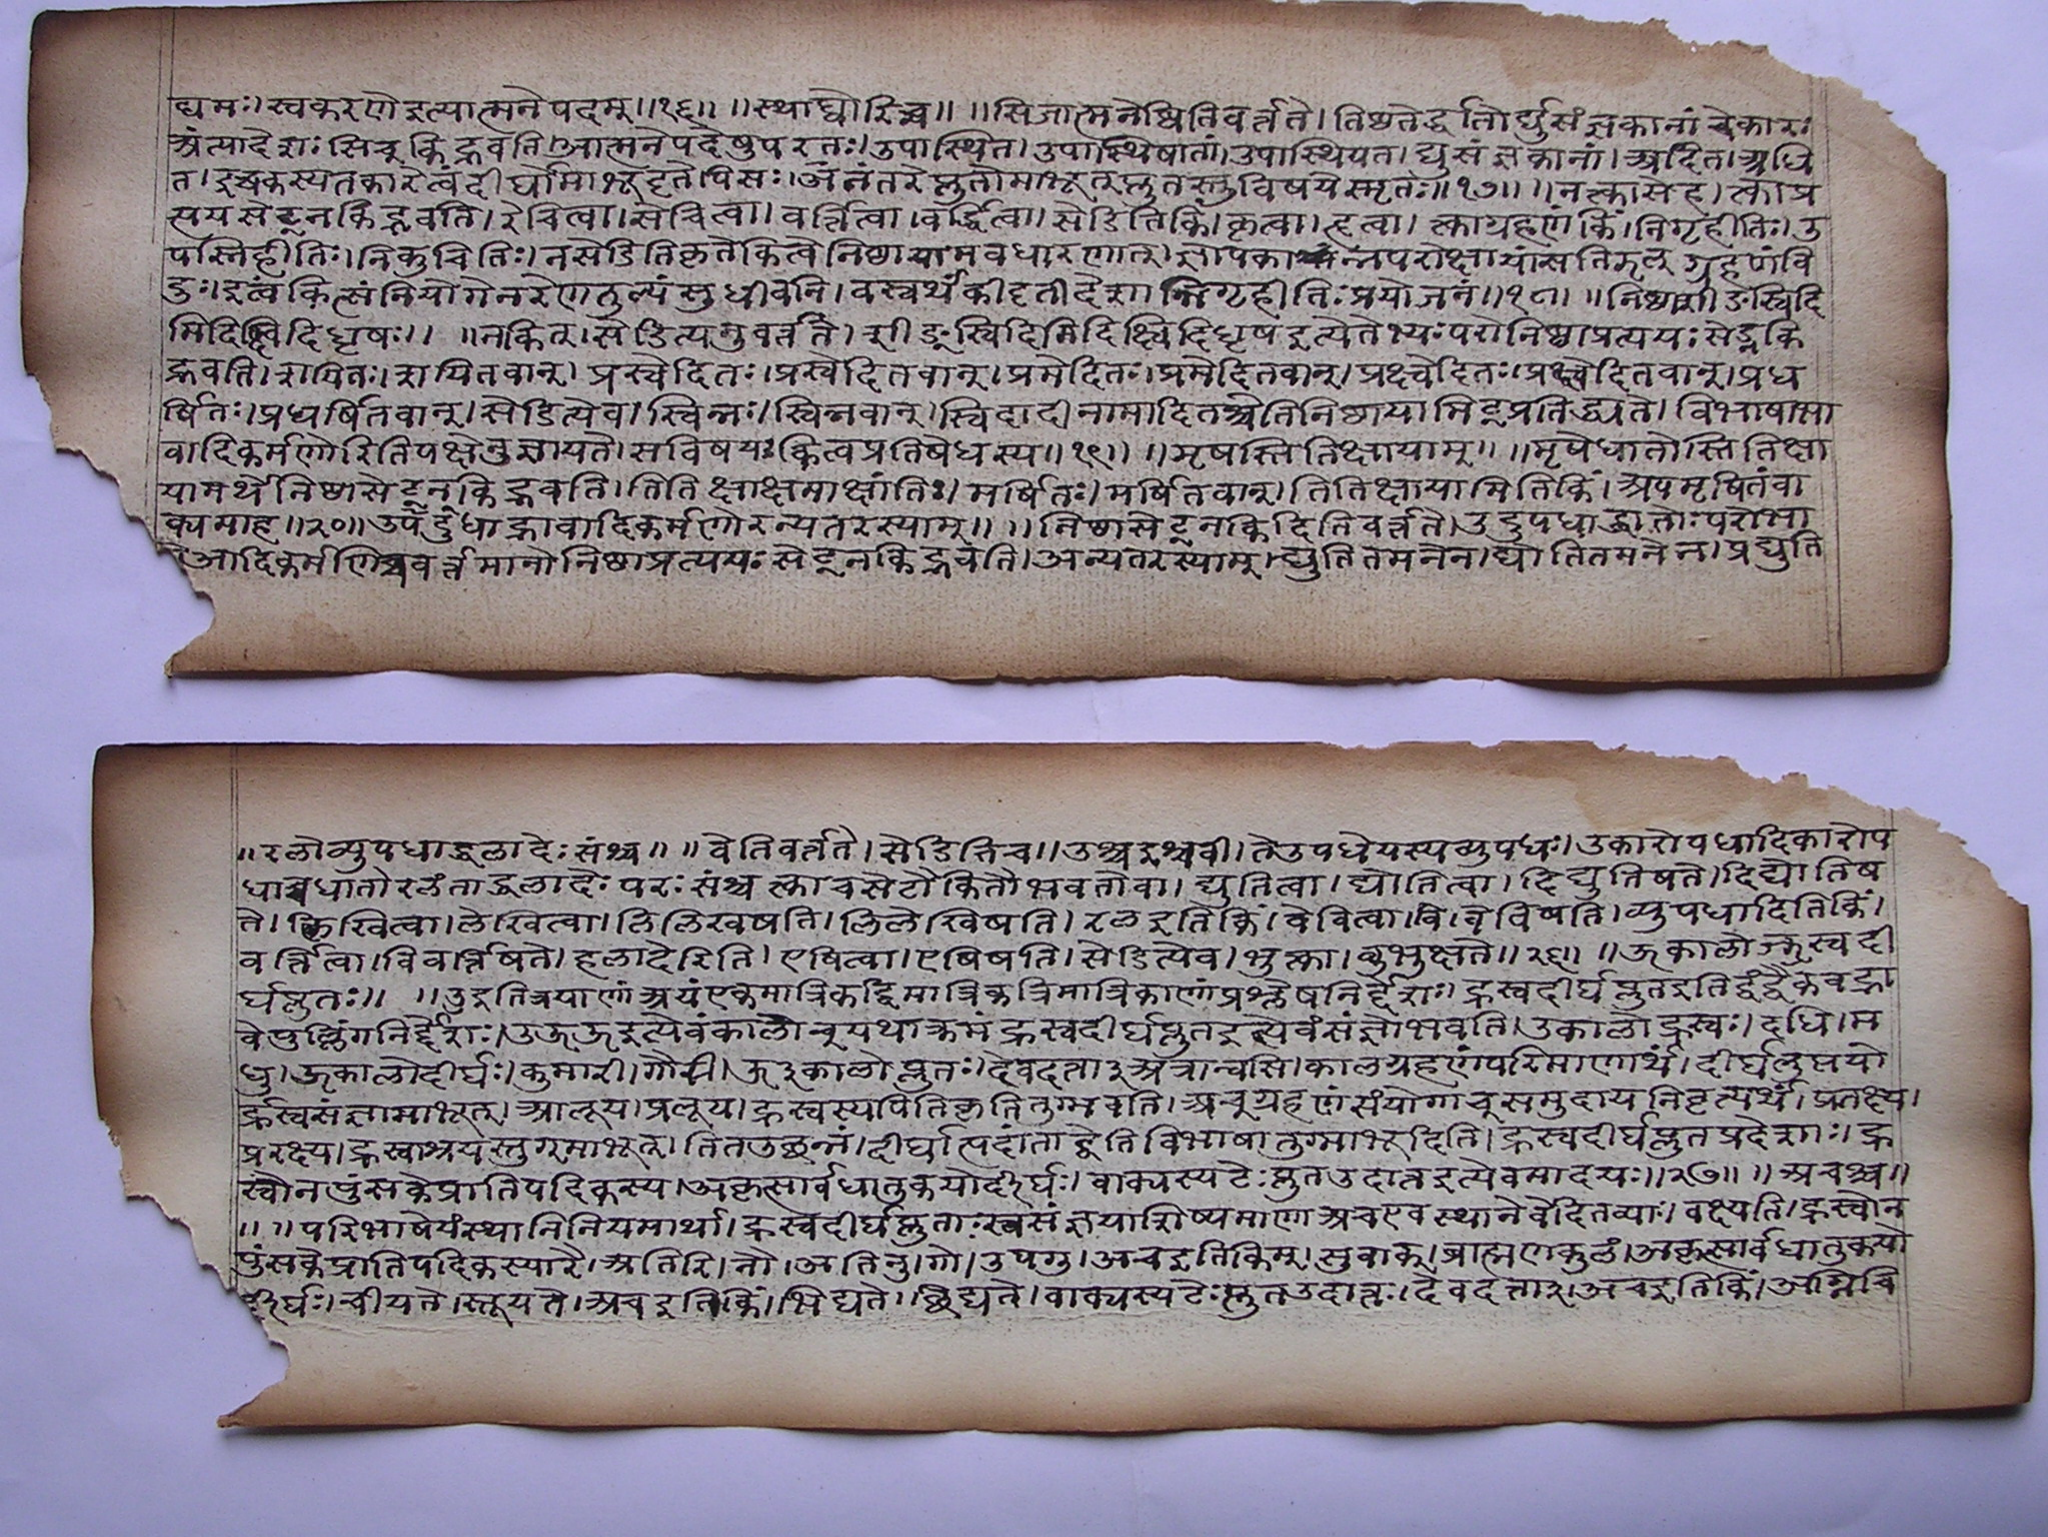 यमः। स्वकरणे इत्यात्मनेपदम्॥१६॥ ॥स्थाघ्वोरिच्च॥ ॥सिजात्मनेष्विति वर्त्तते। तिष्ठतेर्द्धातोर्घुसंज्ञकानां चेकारः
अंत्यादेशः सिच् किद्भवति। आत्मनेपदेषु परतः। उपास्थित। उपास्थिषातां। उपास्थिषत। घुसंज्ञकानां। अदित। अधि
त। इच्च कस्य तकारेत्वं दीर्घो माभूदृतेपि सः। अनंतरे प्लुतो माभूत् प्लुतस्तु विषये स्मृतः॥१७॥ ॥न त्का सेट्। त्काप्र
त्यय सेट् न किद्भवति। सेचित्वा। वर्त्तित्वा। वर्द्धित्वा। सेडिति किं। कृत्वा। हृत्वा। त्काग्रहणं किं। निगृहीतिः। उ
पस्निहीतिः। निकुचितिः। न सेडिति कृते कित्वे निष्ठायामवधारणात्। ज्ञापकान्न परोक्षायां सति झल् ग्रहणं वि
दुः। इत्वं कित्संनियोगेन रेण तुल्यं सुधीवनि। वस्वर्थं निगृहीतिः प्रयोजनं॥१८॥ ॥निष्ठा शीङ्स्विदि
मिदिक्ष्विदिधृषः॥ ॥न कित्। सेडित्यनुवर्त्तते। शीङ् स्विदि मिदि क्ष्विदि धृष इत्येतेभ्यः परो निष्ठाप्रत्ययः सेड्न कि
द्भवति। शयितः। शयितवान्। प्रस्वेदितः। प्रस्वेदितवान्। प्रमेदितः। प्रमेदितवान्। प्रक्ष्वेदितः। प्रक्ष्वेदितवान्। प्रध
र्षितः। प्रधर्षितवान्। सेडित्येव। स्विन्नः। स्विन्नवान्। स्विदादीनामादितश्चेति निष्ठायामिट् प्रतिद्ध्यते। विभाषा भा
वादिकर्मणोरिति पक्षेनुज्ञायते। स विषयः कित्वप्रतिषेधस्य॥१९॥ ॥मृषस्तितिक्षायाम्॥ ॥मृषेधातोस्तितिक्षा
यामर्थे निष्ठा सेट् न किद्भवति। तितिक्षा क्षमा क्षांतिः। मर्षितः। मर्षितवान्। तितिक्षायामिति किं। अपमृषितं वा
क्यमाह॥२०॥ उपधाद्भावादिकर्मणोरन्यतरस्याम्॥ ॥निष्ठा सेट् न किदिति वर्त्तते। उदुपधाद्धातोः परो भा
आदिकर्मणि च वर्त्तमानो निष्ठाप्रत्ययः सेट् न किद्भवति। अन्यतरस्याम्। द्युतितमनेन। द्योतितमनेन। प्रद्युति
॥रलो व्युपधाद्धलादेः संश्च॥ ॥वेति वर्त्तते। सेडिति च॥ उश्च इश्च वी। ते उपधे यस्य व्युपधः। उकारोपधादिकारोप
धाच्च धातोरलंताद्धलादेः परः संश्च त्का च सेटौ कितौ भवतो वा। द्युतित्वा। द्योतित्वा। दिद्युतिषते। दिद्योतिष
ते। लिखित्वा। लेखित्वा। लिलिखिषति। लिलेखिषति। रल इति किं। देवित्वा। व्युपधादिति किं।
वर्त्तित्वा। विवर्त्तिषते। हलादेरिति। एषित्वा। एषिषति। सेडित्येव। भुत्का। बुभुक्षते॥२६॥ ॥ऊकालोज्झ्रस्वदी
र्घप्लुतः॥ ॥उ इति त्रयाणां अयं एकमात्रिकद्विमात्रिकत्रिमात्रिकाणां प्रश्लेषनिर्द्देशः। ह्रस्वदीर्घप्लुत इति द्वंद्वैकवद्भा
वे पुल्लिंगनिर्द्देशः। उ ऊ ऊ इत्येवं कालोच् यथाक्रमं ह्रस्वदीर्घप्लुत इत्येवं संज्ञो भवति। उकालो ह्रस्वः। दधि। म
धु। ऊकालो दीर्घः। कुमारी। गौरी। ऊ३कालो प्लुतः। देवदत्ता३ अत्रान्वसि। कालग्रहणं परिमाणार्थं। दीर्घप्लुतयो
र्ह्रस्वसंज्ञा माभूत्। आलूय। प्रलूय। ह्रस्वस्य पिति कृति तुग्भवति। अच् ग्रहणं संयोगाच् समुदायनिवृत्यर्थं। प्रतक्ष्य।
प्ररक्ष्य। ह्रस्वाश्रयस्तुग् माभूत्। तितउछन्नं। दीर्घात्पदांताद्वेति विभाषा तुग्माभूदिति। ह्रस्वदीर्घप्लुतप्रदेशाः। ह्र
स्वो नपुंसके प्रातिपदिकस्य। अकृत्सार्वधातुकयोर्दीर्घः। वाक्यस्य टेः प्लुत उदात्त इत्येवमादयः॥२७॥ ॥अचश्च॥
॥ ॥परिभाषेयं स्थानिनियमार्था। ह्रस्वदीर्घप्लुताः स्वसंज्ञया शिष्यमाणा अच एव स्थाने वेदितव्याः। वक्ष्यति। ह्रस्वो न
पुंसके प्रातिपदिकस्य। रै। अतिरि। नौ। अतिनु। गो। उपगु। अच इति किम्। सुवाक्। ब्राह्मणकुलं। अकृत्सार्वधातुकयो
र्दीर्घः। चीयते। स्तूयते। अच इति किं। भिद्यते। छिद्यते। वाक्यस्य टेः प्लुत उदात्तः। देवदत्ता३। अच इति किं। अग्निचि